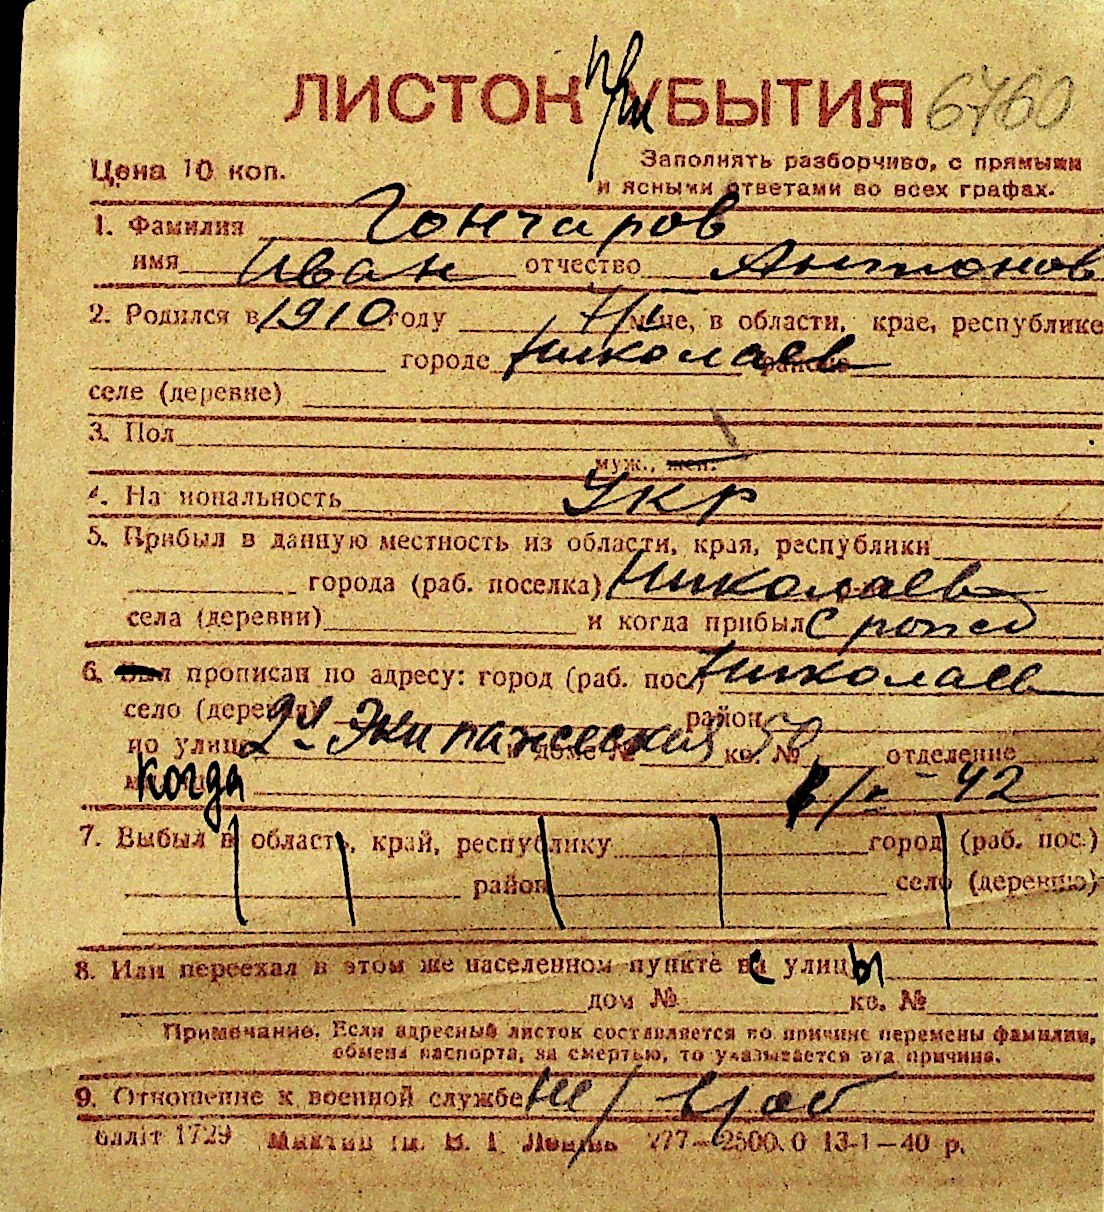 ЛИСТОК при УБЫТИЯ 6760
Цена 10 коп.
Заполнять разборчиво, с прямыми
и ясными ответами во всех графах.
1. Фамилия Гончаров
имя Иван отчество Антонов
2. Родился в 1910 году м-це, в области, крае, республике
городе Николаев районе
селе (деревне)
3. Пол
муж., жен.
4. Национальность Укр
5. Прибыл в данную местность из области, края, республики
города (раб. поселка) Николаев
села (деревни) и когда прибыл с рожд
6. Был прописан по адресу: город (раб. пос.) Николаев
село (деревня) район
по улице 2я Экипажеская в доме № 50 кв. № отделение
когда 42
7. Выбыл в область, край, республику город (раб. пос.)
район село (деревню)
8. Или переехал в этом же населенном пункте с улицы
дом № кв. №
Примечание. Если адресный листок составляется по причине перемены фамилии,
обмена паспорта, за смертью, то указывается эта причина.
9. Отношение к военной службе
1729 777—2500.0 13-1—40 р.